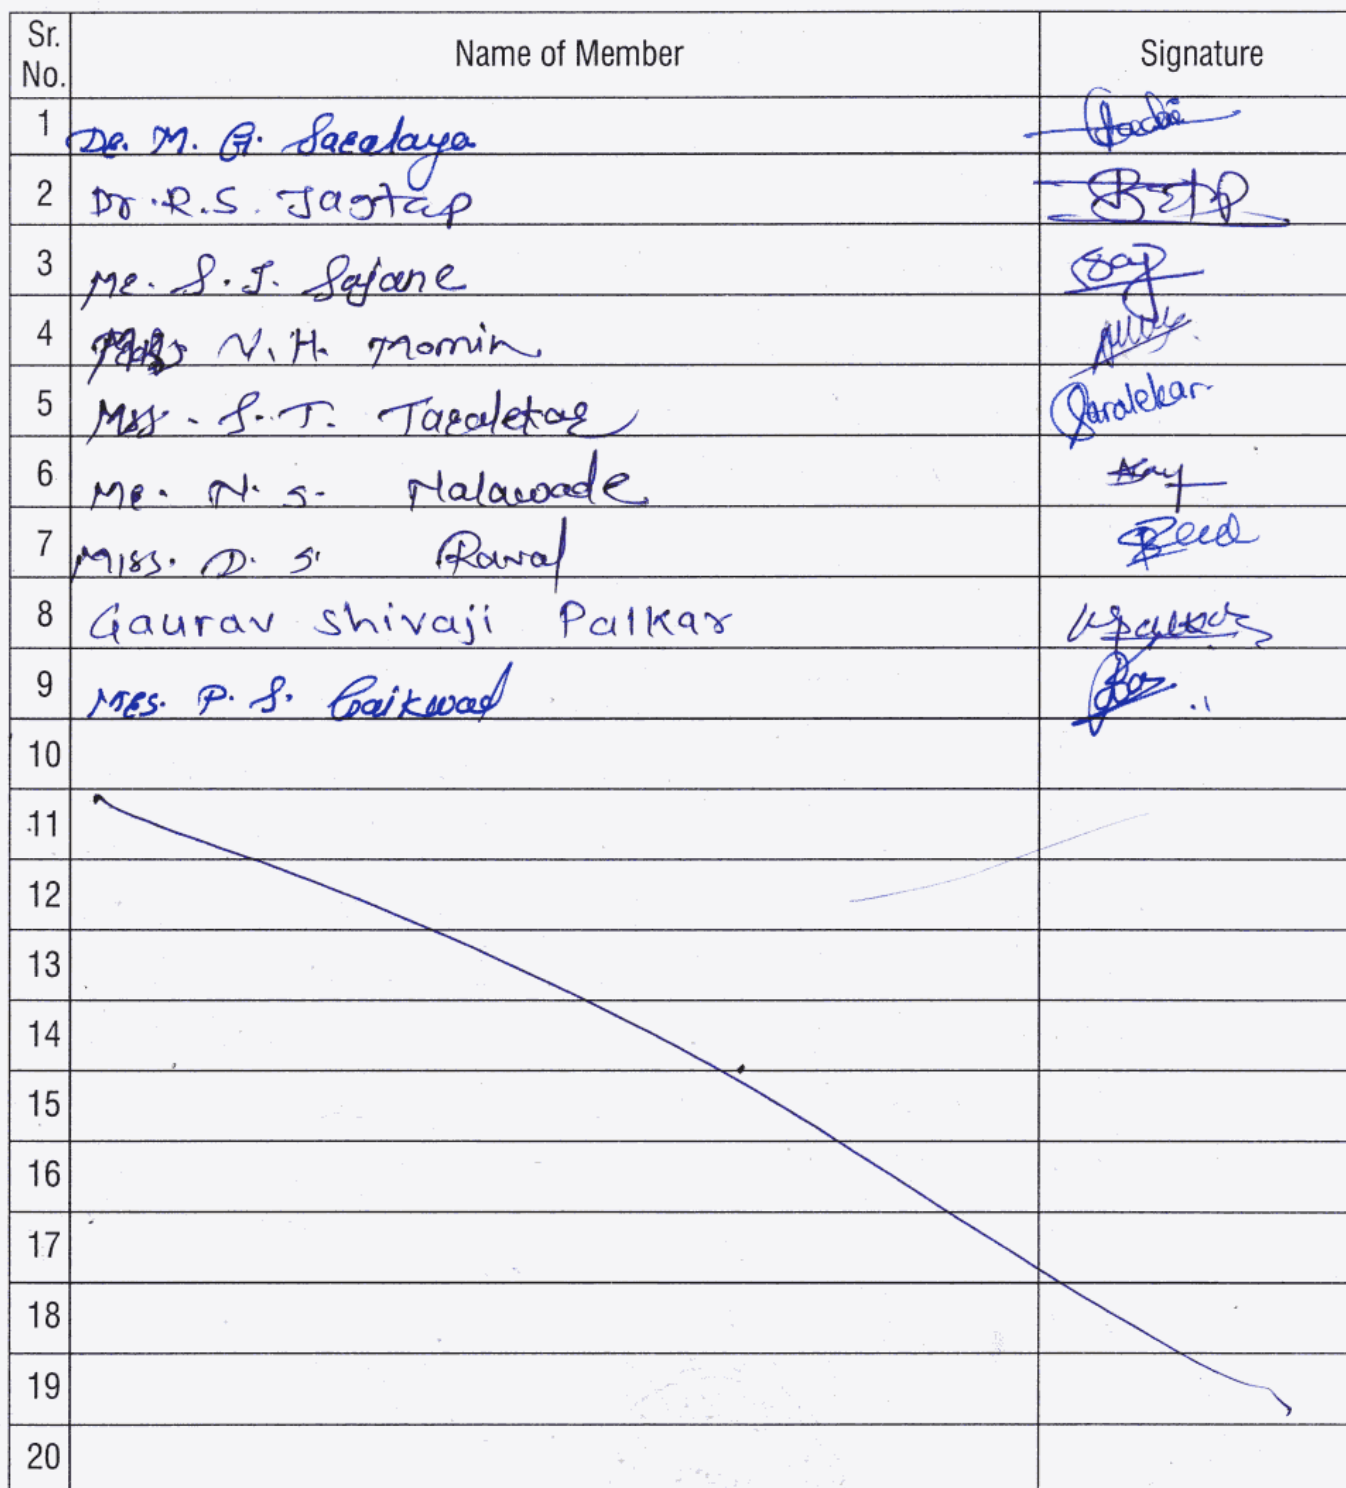 Sr. No. Name of Member Signature
1 Dr. M. G. Saralaya
2 Dr. R.S. Jagtap
3 Mr. S. J. Sajane
4 N. H. Momin
5 Mrs. S. T. Taralekar Saralekar
6 Mr. N. S. Nalawade
7 Miss. D. S. Raval
8 Gaurav Shivaji Palkar
9 Mrs. P. S. Gaikwad
10
11
12
13
14
15
16
17
18
19
20